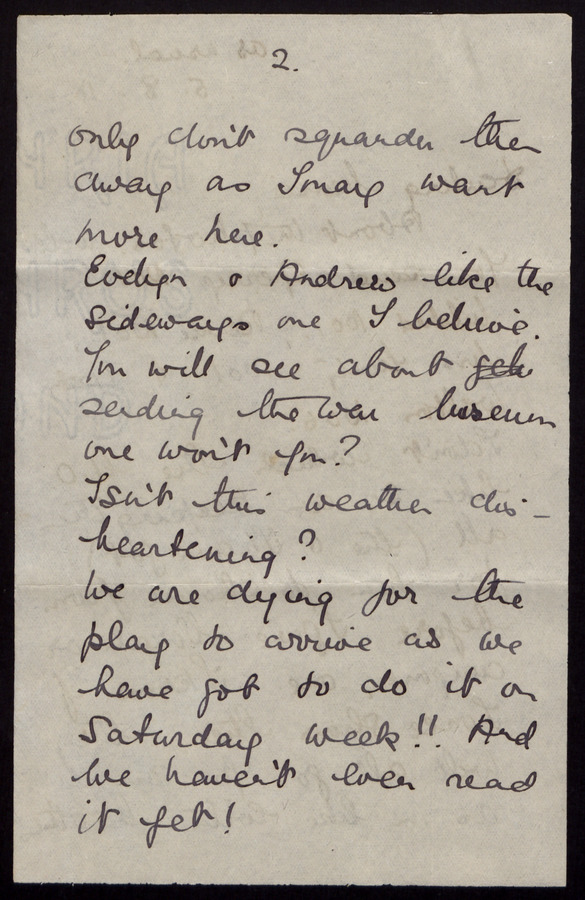 2.
only don't squander them
away as I may want
more here.
Evelyn & Andrew like the
sideways one I believe.
You will see about
sending the War Museum
one won't you?
Isn't this weather dis-
heartening?
We are dying for the
play to arrive as we
have got to do it on
Saturday week!! And
we haven't even read
it yet!